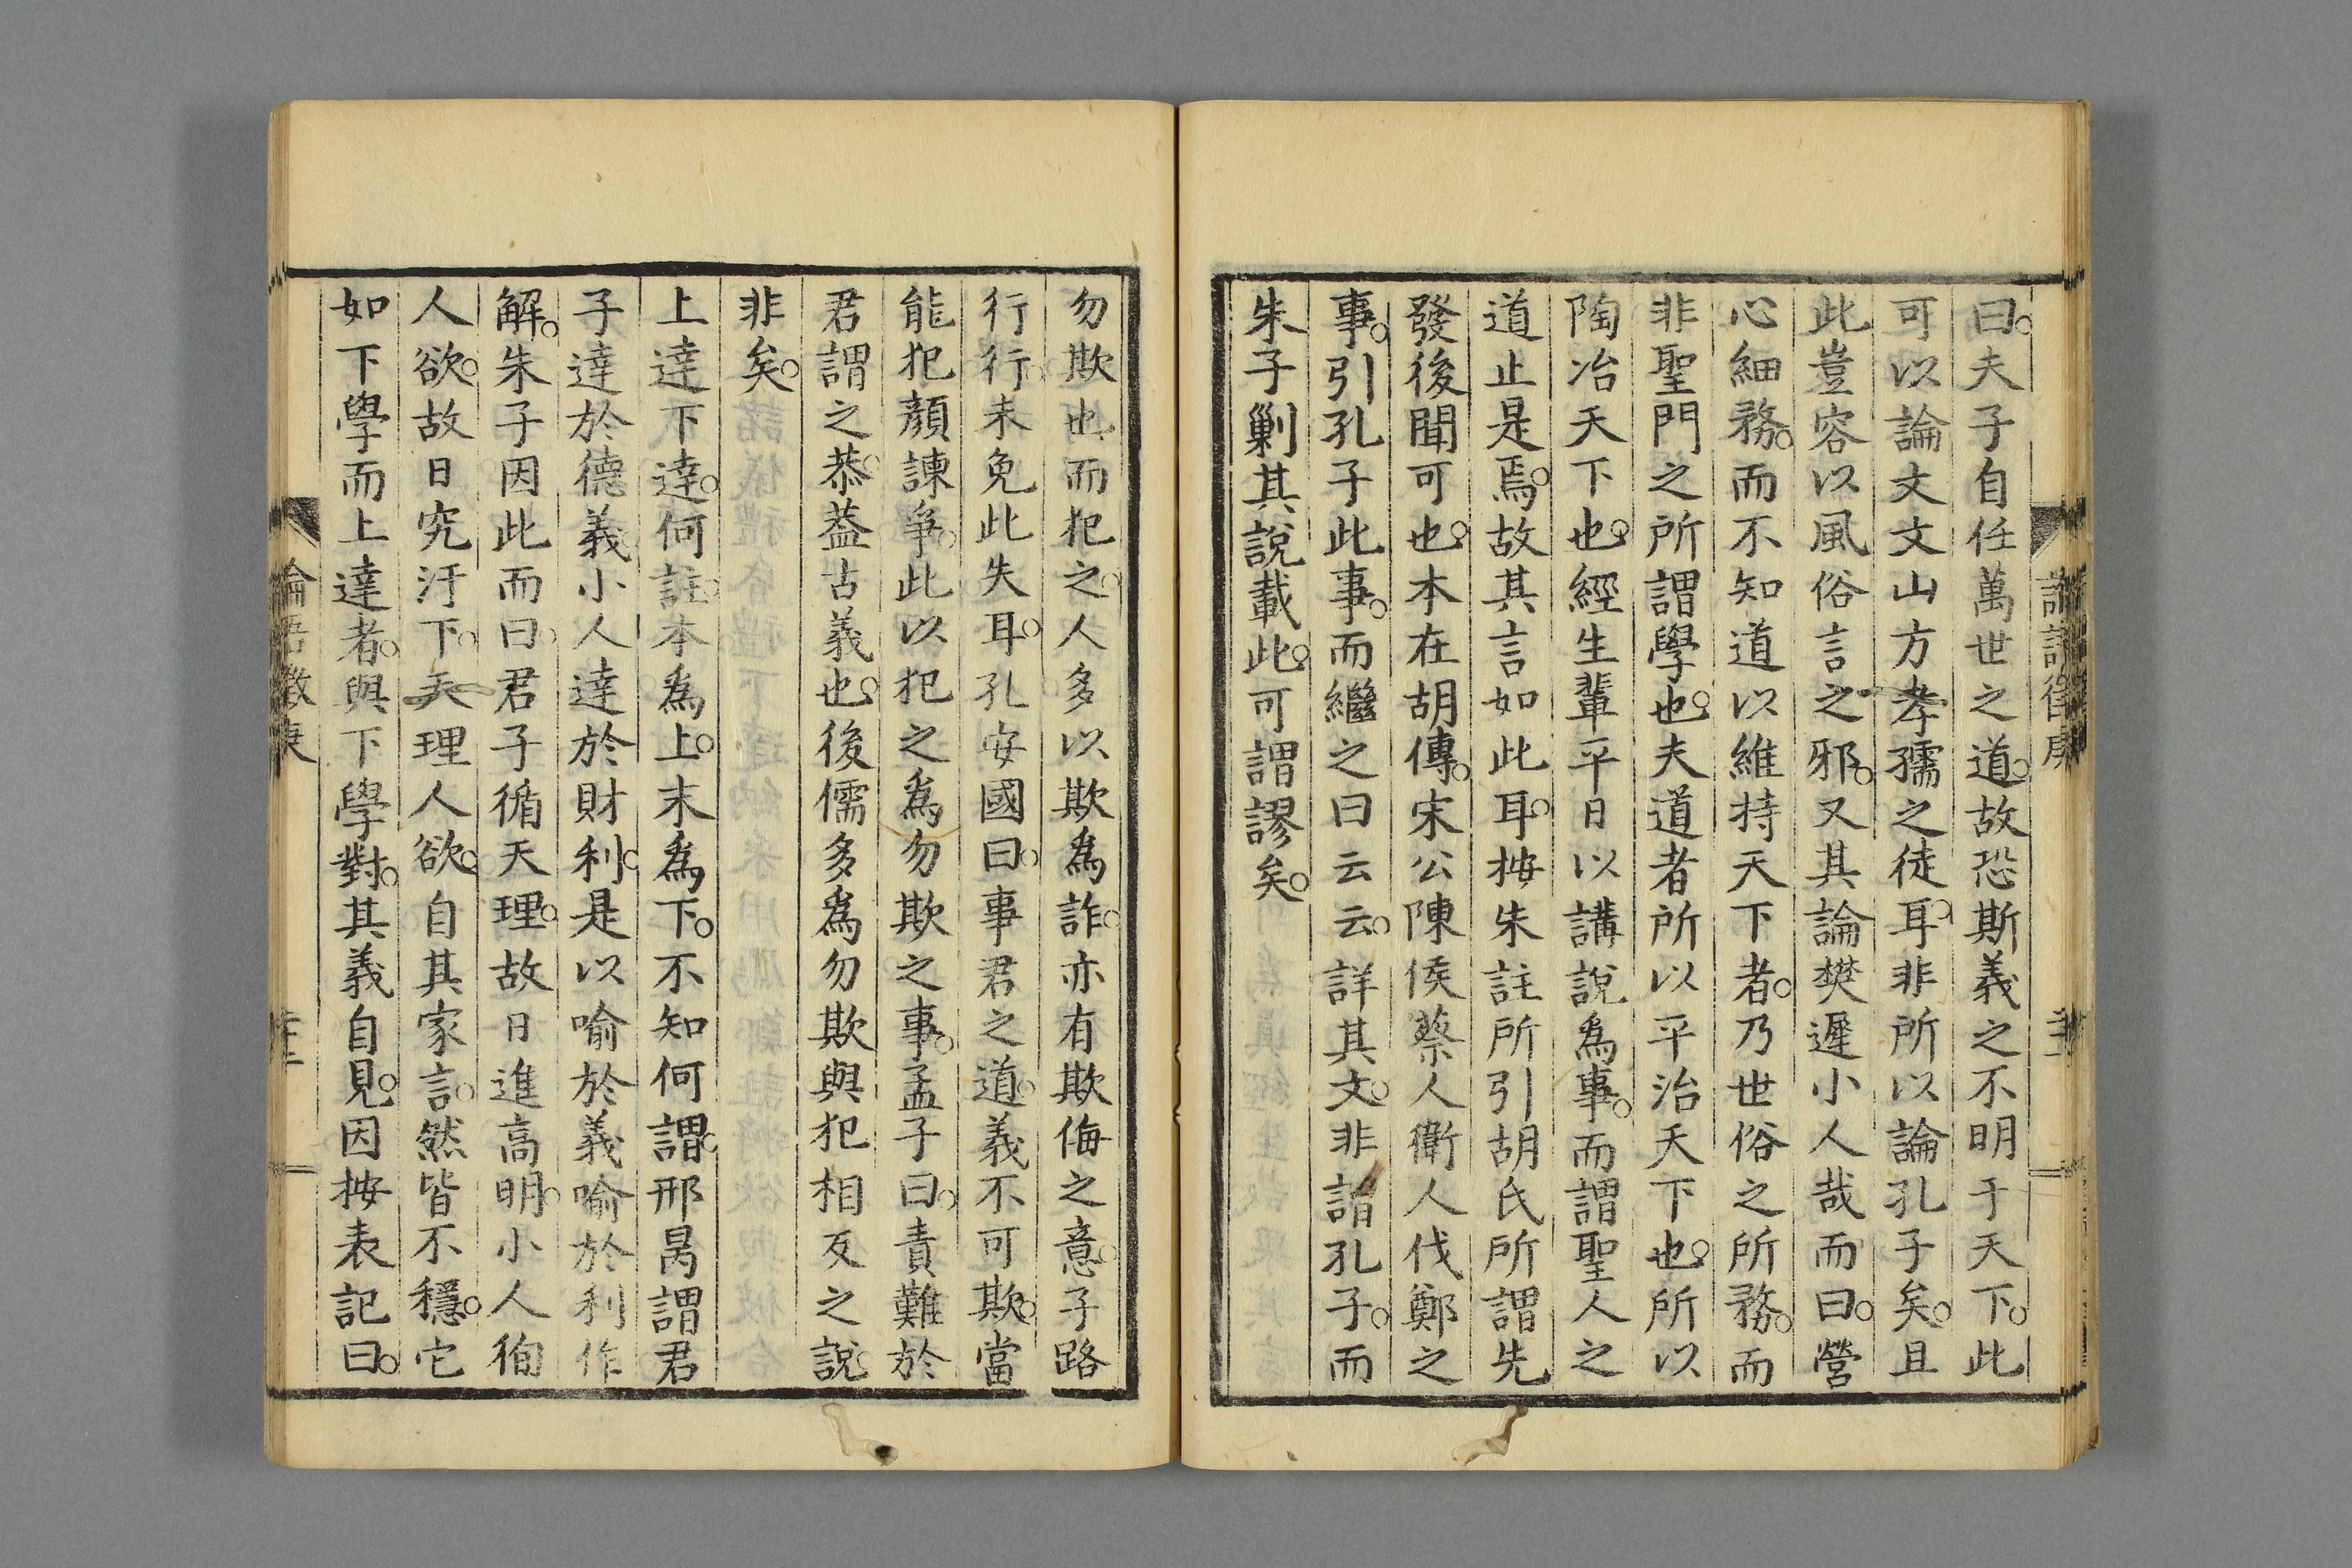 曰。夫子自任萬世之道。故恐斯義之不明于天下。此
可以論文文山方孝孺之徒耳。非所以論孔子矣。且
此豈容以風俗言之邪。又其論樊遲小人哉而曰。營
心細務。而不知道以維持天下者。乃世俗之所務。而
非聖門之所謂學也。夫道者所以平治天下也。所以
陶冶天下也。經生輩平日以講說爲事。而謂聖人之
道止是焉。故其言如此耳。按朱註所引胡氏所謂先
發後聞可也。本在胡傳。宋公陳侯蔡人衛人伐鄭之
事。引孔子此事。而繼之曰云云。詳其文。非謂孔子。而
朱子剿其說載此。可謂謬矣。
勿欺也而犯之。人多以欺爲詐。亦有欺侮之意。子路
行行。未免此失耳。孔安國曰。事君之道。義不可欺。當
能犯顏諫爭。此以犯之爲勿欺之事。孟子曰。責難於
君謂之恭。葢古義也。後儒多爲勿欺與犯相反之說。
非矣。
上達下達。何註。本爲上。末爲下。不知何謂。邢昺謂君
子達於德義。小人達於財利。是以喻於義喻於利作
解。朱子因此而曰。君子循天理。故日進高明。小人徇
人欲。故日究汙下。天理人欲。自其家言。然皆不穩。它
如下學而上達者。與下學對。其義自見。因按表記曰。
論語徵庚